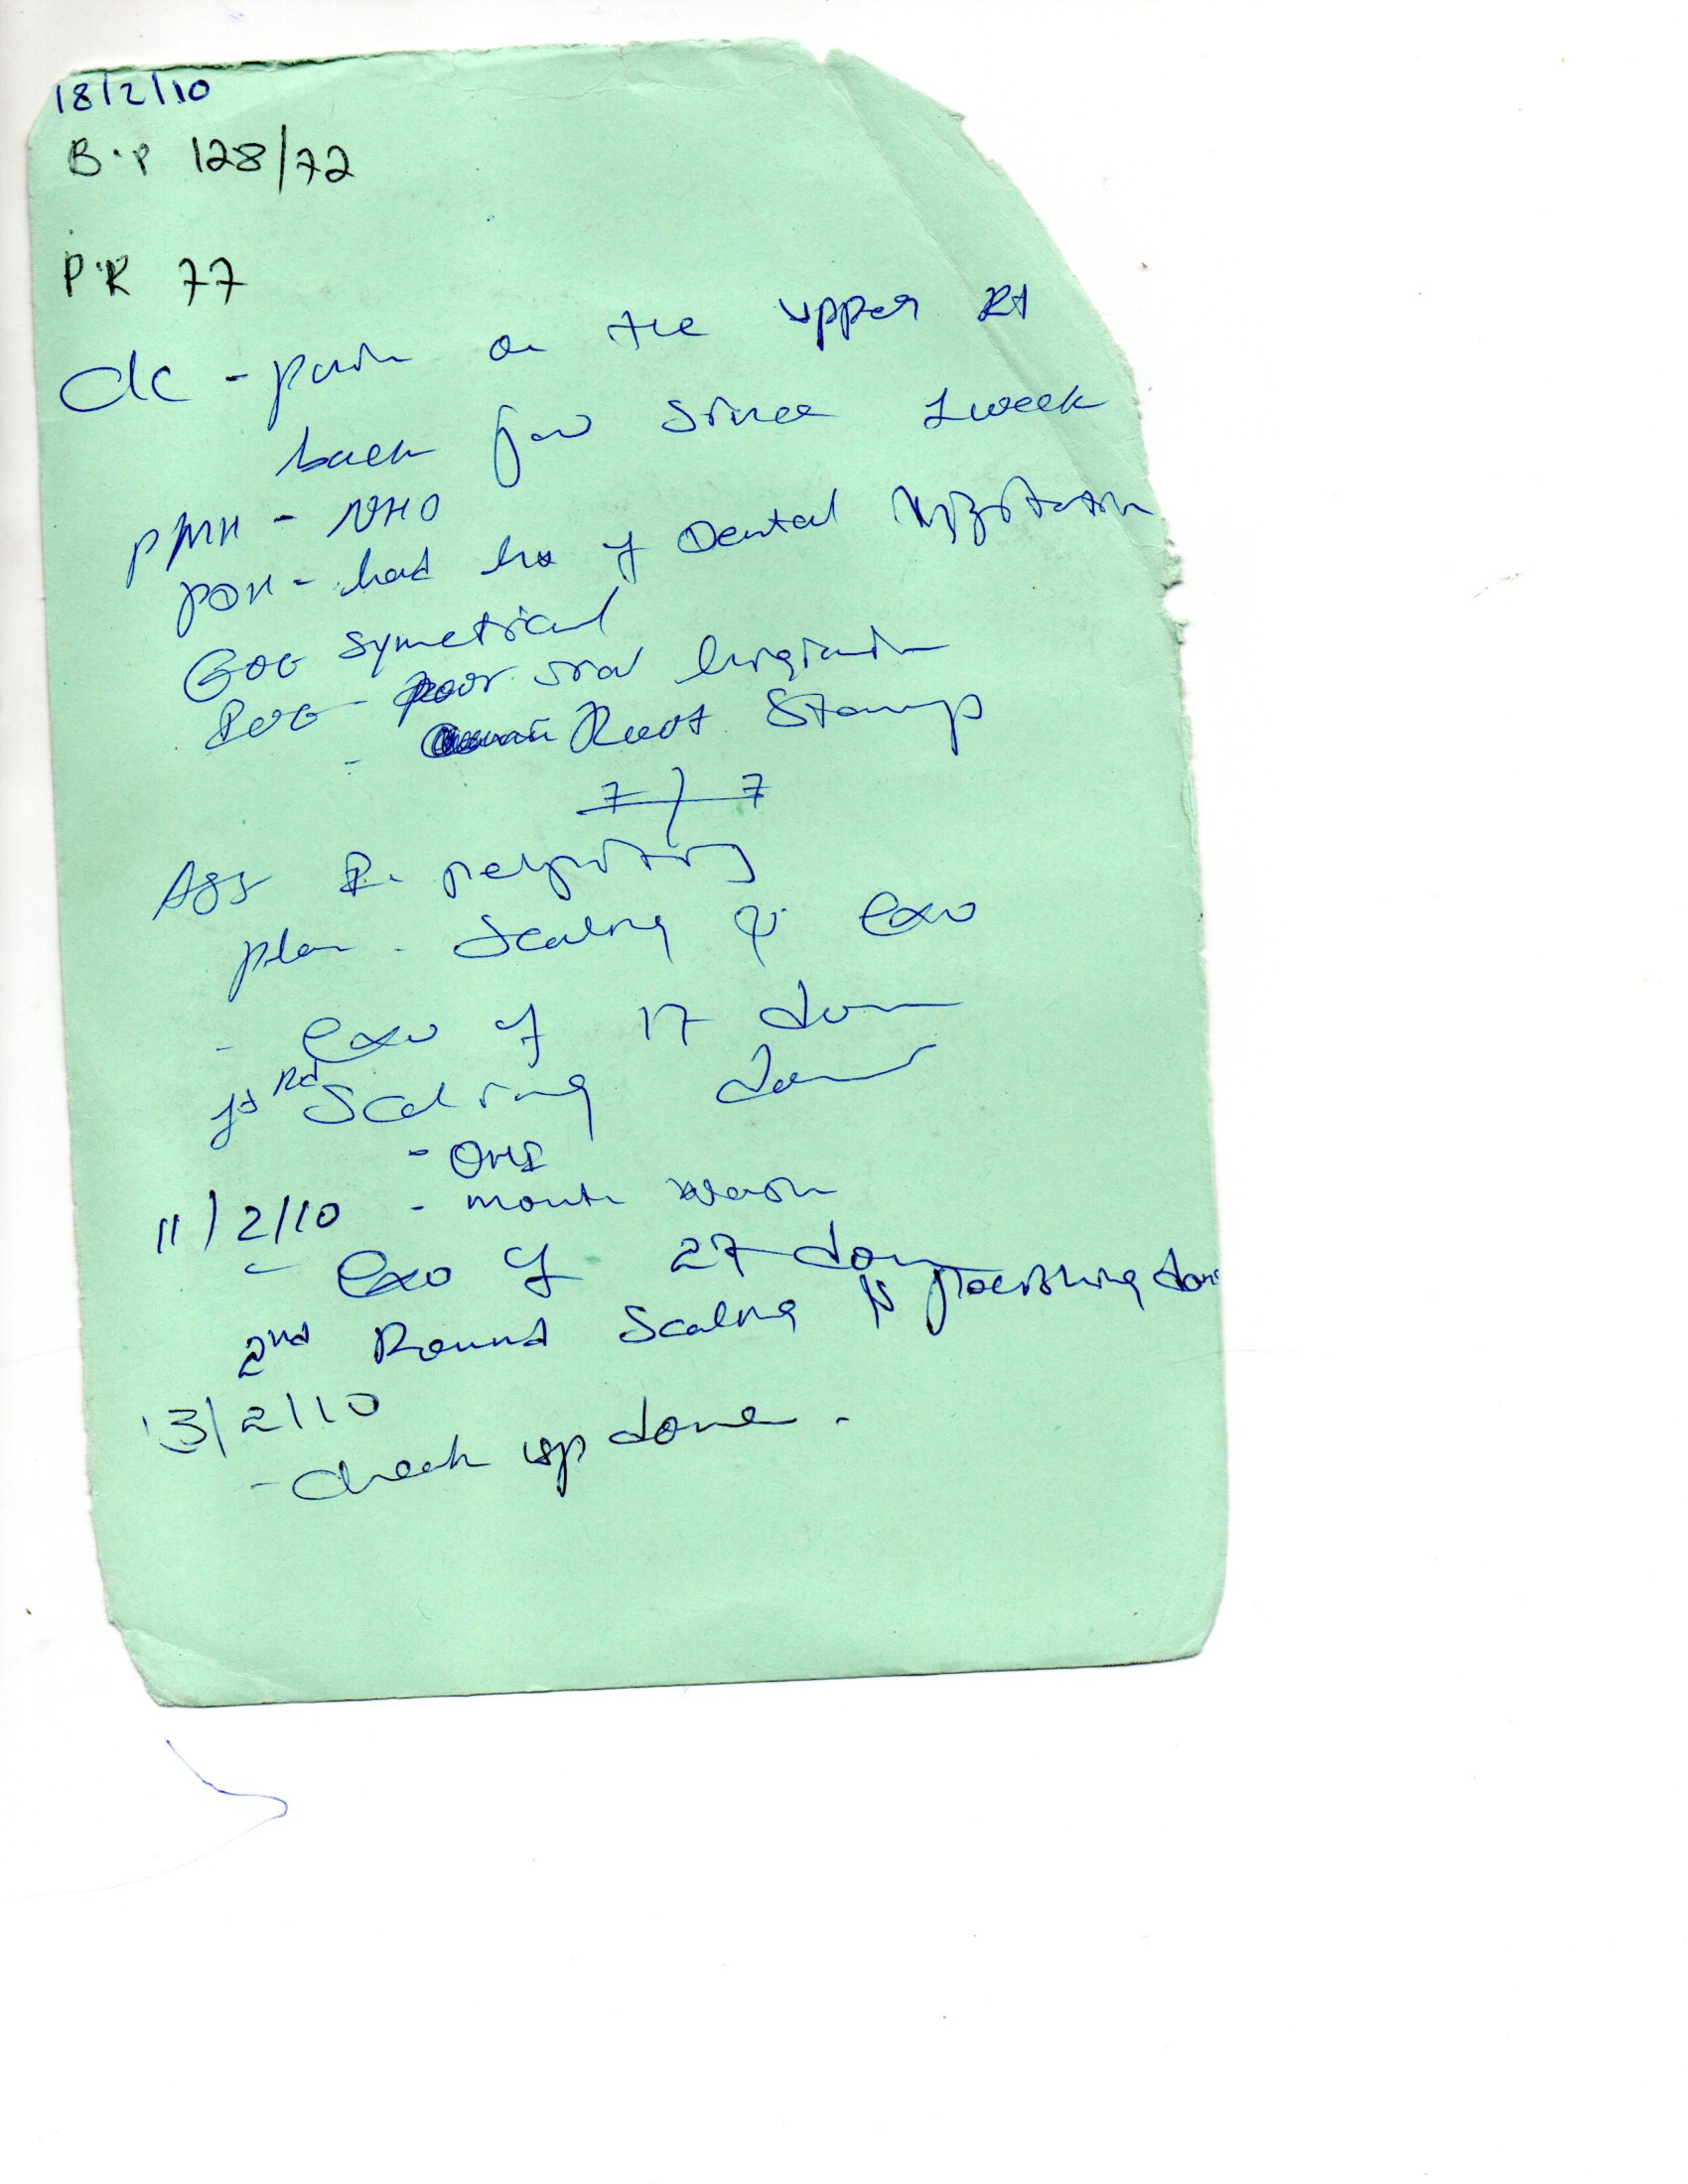 18/2/10
B.P 128/72
P.R 77
C/C - pain on the upper Rt
back jaw since 1 week
PMH - NHO
PDH - had hx of Dental
EOE symetrical
IOE - poor oral
- Root Stump
7 | 7
Ass
plan - Scaling & exo
- exo of 17 done
1st Rd Scaling done
- OHI
11/2/10 - mouth wash
- exo of 27 done
2nd Round Scaling & polishing done
13/2/10
- check up done.